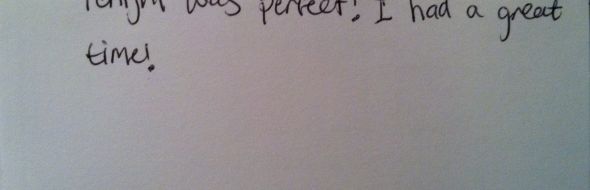 Tonight was perfect! I had a great
time!